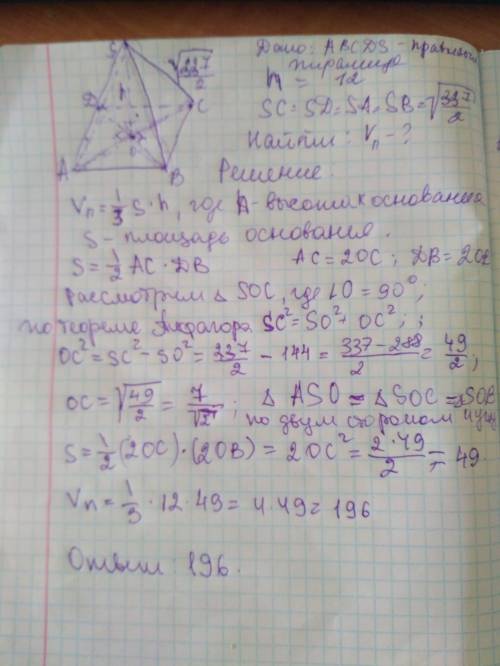 S
√337/2
D
h
C
O
A
B
Дано: ABCDS - правильн
пирамида
h = 12
SC=SD=SA=SB=√337/2
Найти: Vп - ?
Решение.
Vп = 1/3 S·h, где h - высота к основанию
S - площадь основания.
S = 1/2 AC·DB AC = 2OC; DB = 2OB
Рассмотрим △ SOC, где ∠O = 90°;
по теореме Пифагора SC² = SO² + OC²; ;
OC² = SC² - SO² = 337/2 - 144 = (337-288)/2 = 49/2;
OC = √49/2 = 7/√2; △ ASO = △SOC = △SOB
по двум сторонам и углу
S = 1/2 (2OC)·(2OB) = 2OC² = 2·49/2 = 49
Vп = 1/3 · 12 · 49 = 4·49 = 196
Ответ: 196.